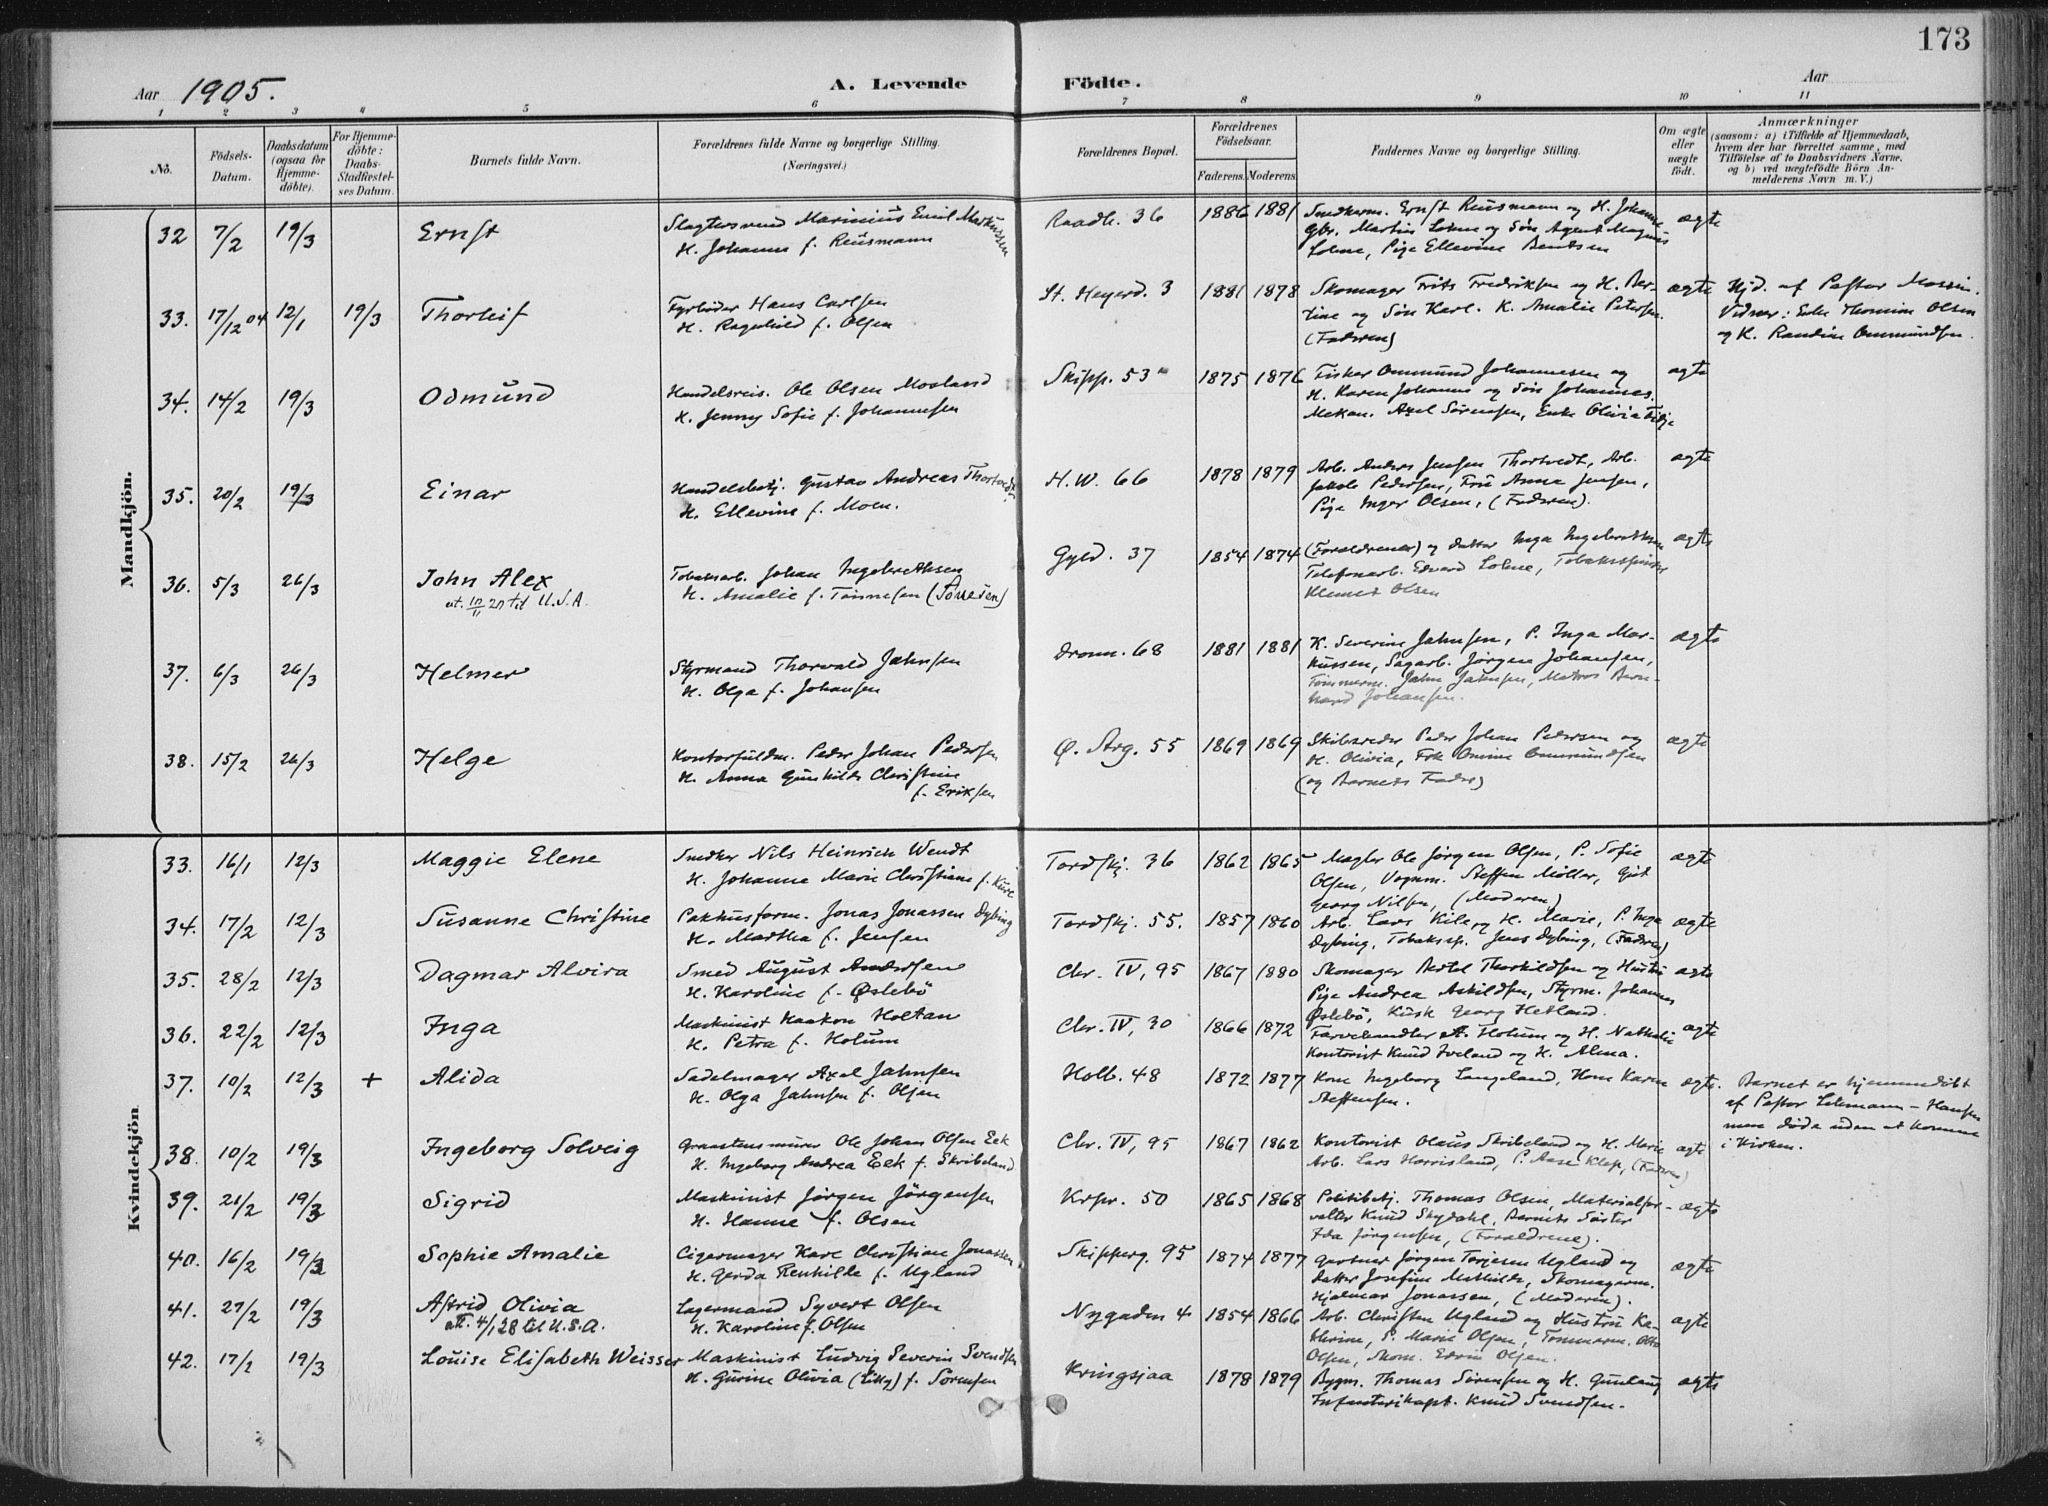 173
Aar 1905. A. Levende Födte. Aar
1 2 3 4 5 6 7 8 9 10 11
No. Födsels-Datum. Daabsdatum (ogsaa for Hjemmedöbte). For Hjemmedöbte: Daabs-Stadfæstelses Datum. Barnets fulde Navn. Forældrenes fulde Navne og borgerlige Stilling. (Næringsvei.) Forældrenes Bopæl. Forældrenes Födselsaar. Faderens. Moderens. Faddernes Navne og borgerlige Stilling. Om ægte eller uægte födt. Anmærkninger (saasom: a) i Tilfælde af Hjemmedaab, hvem der har forrettet samme, med Tilföielse af to Daabsvidners Navne, og b) ved uægtefödte Börn Anmelderens Navn m. V.)
Mandkjön.
32 7/2 19/3 Ernst Slagtersvend Marinius Emil Markussen Raadh. 36 1886 1881 Smedkerm. Ernst Reusmann og H. Johanne ægte
H. Johanne f. Reusmann Gbr. Martin Lohne og Søn Agent Magnus
Lohne, Pige Ellevine Bentsen
33. 17/12 04 12/1 19/3 Thorleif Fyrbøder Hans Carlsen St. Heyerd. 3 1881 1878 Skomager Frits Fredriksen og H. Ber- ægte Hjd. af Pastor
H. Ragnhild f. Olsen tine og Søn Karl. K. Amalie Petersen. Vidner: Enke Thomine Olsen
(Faderen) og K. Randine Ommundsen.
34. 14/2 19/3 Odmund Handelsreis. Ole Olsen Mosland Skipp. 53 1875 1876 Fisker Ommund Johannesen og ægte
H. Jenny Sofie f. Johannesen H. Karen Johanne og Søn Johannes.
Mekan. Axel Sørensen, Enke Olivia
35. 20/2 19/3 Einar Handelsbetj. Gustav Andreas Thortvedt H. W. 66 1878 1879 Arb. Anders Jensen Thortvedt, Arb. ægte
H. Ellevine f. Moen. Jakob Pedersen, Fru Anna Jensen,
Pige Inger Olsen, (Faderen).
36. 5/3 26/3 John Alex Tobaksarb. Johan Ingebretsen Gyld. 37 1854 1874 (Forældrene) og datter Inga Ingebretsen ægte
ut. 10/11 27 til U.S.A. H. Amalie f. Tønnesen Telefonarb. Edvard Lohne, Tobaksspinder
Klemet Olsen
37. 6/3 26/3 Helmer Styrmand Thorvald Jahnsen Dronn. 68 1881 1881 K. Severine Jahnsen, P. Inga Mar- ægte
H. Olga f. Johansen kussen, Sagarb. Jörgen Johansen,
Tømmerm. Jahn Jahnsen, Matros Bern-
hard Johansen.
38. 15/2 26/3 Helge Kontorfuldm. Peder Johan Pedersen Ø. Strg. 55 1869 1869 Skibsreder Peder Johan Pedersen og ægte
H. Anna Gunhilde Christine H. Olivia, Frk Omine Ommundsen
f. Eriksen (og Barnets Fader)
Kvindekjön
33. 16/1 12/3 Maggie Elene Snedker Nils Heinrich Wendt Tordskj. 36 1862 1865 Mægler Ole Jörgen Olsen, P. Sofie ægte
H. Johanne Marie Christiane f. Olsen, Vognm. Steffen Möller, Gut
Georg Nilsen, (Moderen)
34. 17/2 12/3 Susanne Christine Pakhusform. Jonas Jonassen Dybing Tordskj. 55. 1857 1860 Arb. Lars Kile, og H. Marie, P. Inga ægte
H. Martha f. Jensen Dybing, Tobakssp. Jens Dybing, (Faderen)
35. 28/2 12/3 Dagmar Alvira Smed August Andersen Chr. IV, 95 1867 1880 Skomager Bertel Thorkildsen og Hustru ægte
H. Karoline f. Øslebö Pige Andrea Askildsen, Styrm. Johannes
Øslebö, Kusk Georg Hetland.
36. 22/2 12/3 Inga Maskinist Haakon Holtan Chr. IV, 30 1866 1872 Farvehandler A. Holum og H. Nathalie ægte
H. Petra f. Holum Kontorist Knud Iveland og H. Alma.
37. 10/2 12/3 + Alida Sadelmager Axel Jahnsen Holb. 48 1872 1877 Kone Ingeborg Langeland, Kone Karen ægte. Barnet er hjemmedøbt
H. Olga Jahnsen f. Olsen Steffensen. af Pastor Lehmann-Hansen
men døde uden at komme
i Kirken.
38. 10/2 19/3 Ingeborg Solveig Graastensmurer Ole Johan Olsen Eek Chr. IV, 95 1867 1862 Kontorist Olaus Skribeland og H. Marie ægte
H. Ingeborg Andrea Eek f. Skribeland Arb. Lars Horrisland, P. Aase Klep, (Faderen)
39. 21/2 19/3 Sigrid Maskinist Jörgen Jörgensen Krpr. 50 1865 1868 Politibetj. Thomas Olsen, Materialfor- ægte
H. Hanne f. Olsen valter Knud Skydahl, Barnets Søster
Ida Jørgensen, (Forældrene).
40. 16/2 19/3 Sophie Amalie Cigarmager Karl Christian Jonassen Skipperg. 95 1874 1877 Gartner Jörgen Terjesen Ugland og ægte
H. Gerda Renhilde f. Ugland datter Josefine Mathilde, Skomagerm.
Hjalmar Jonassen, (Moderen).
41. 27/2 19/3 Astrid Olivia Lagermand Syvert Olsen Nygaden 4 1854 1866 Arb. Christen Ugland og Hustru Ka- ægte
att. 4/1 28 til U.S.A. H. Karoline f. Olsen thrine, P. Marie Olsen, Tømmerm. Otto
Olsen, Skom. Edvin Olsen.
42. 17/2 19/3 Louise Elisabeth Weisser Maskinist Ludvig Severin Svendsen Kringsjaa 1878 1879 Bygm. Thomas Sörensen og H. Gunlaug ægte
H. Gurine Olivia (Lilly) f. Sørensen Infanterikapt. Knud Svendsen.